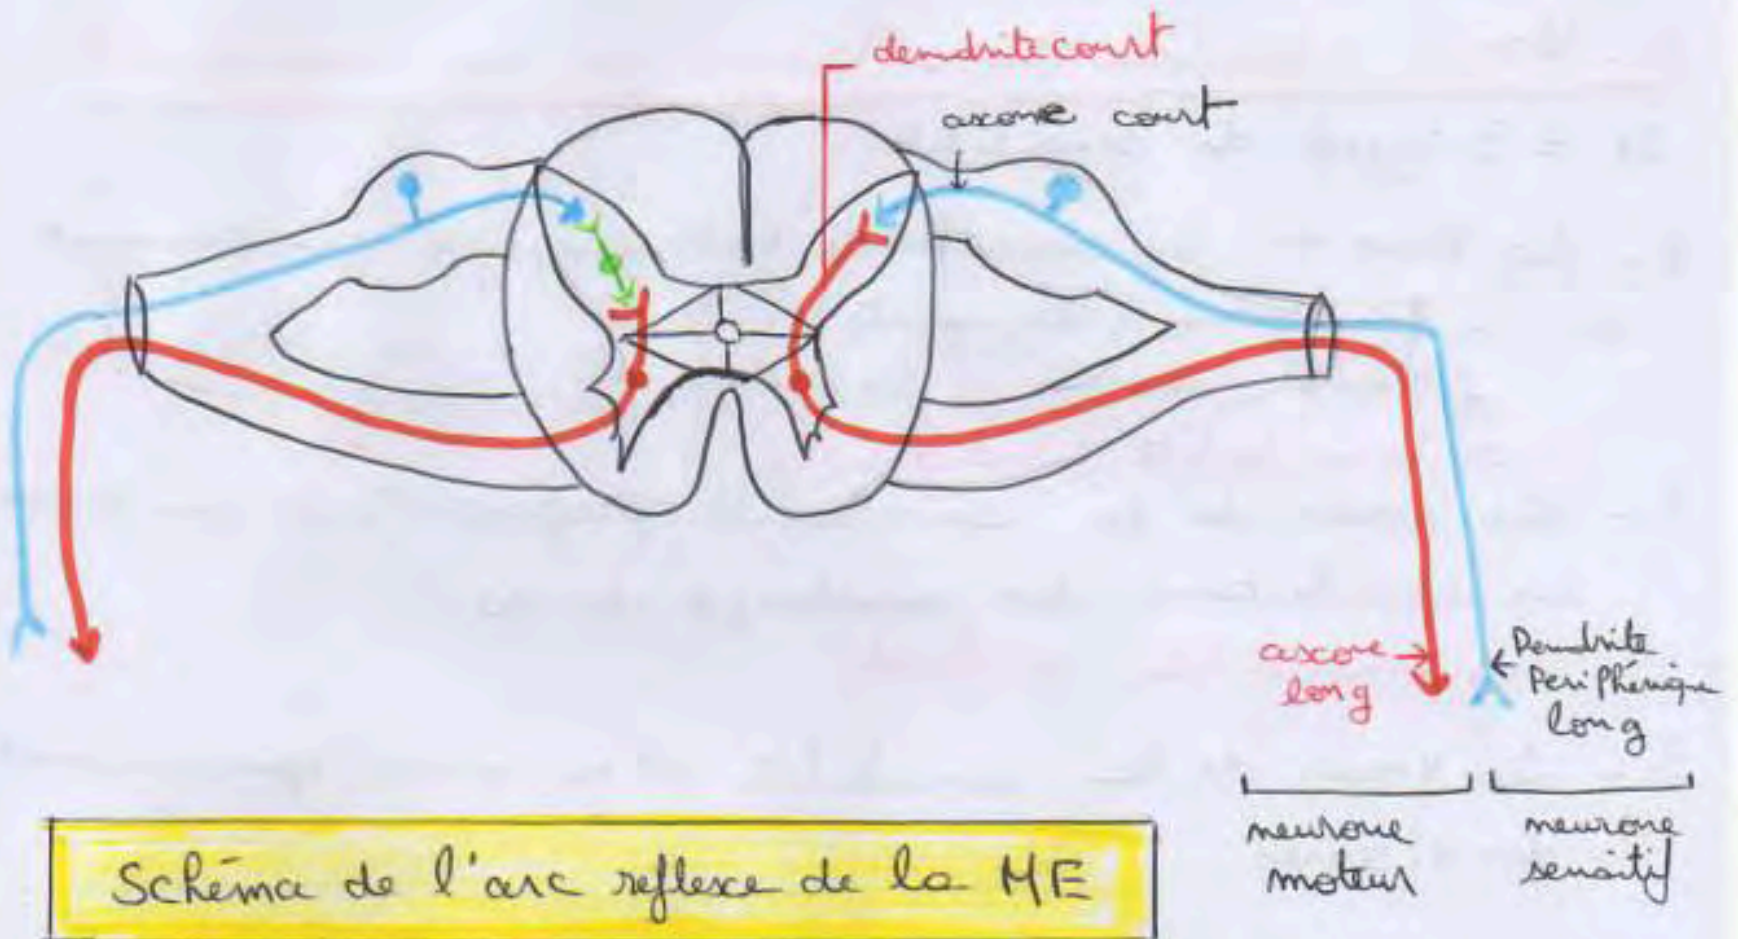 dendrite court
axone court
axone
long
Dendrite
Periphérique
long
neurone
moteur
neurone
sensitif
Schéma de l'arc reflexe de la ME